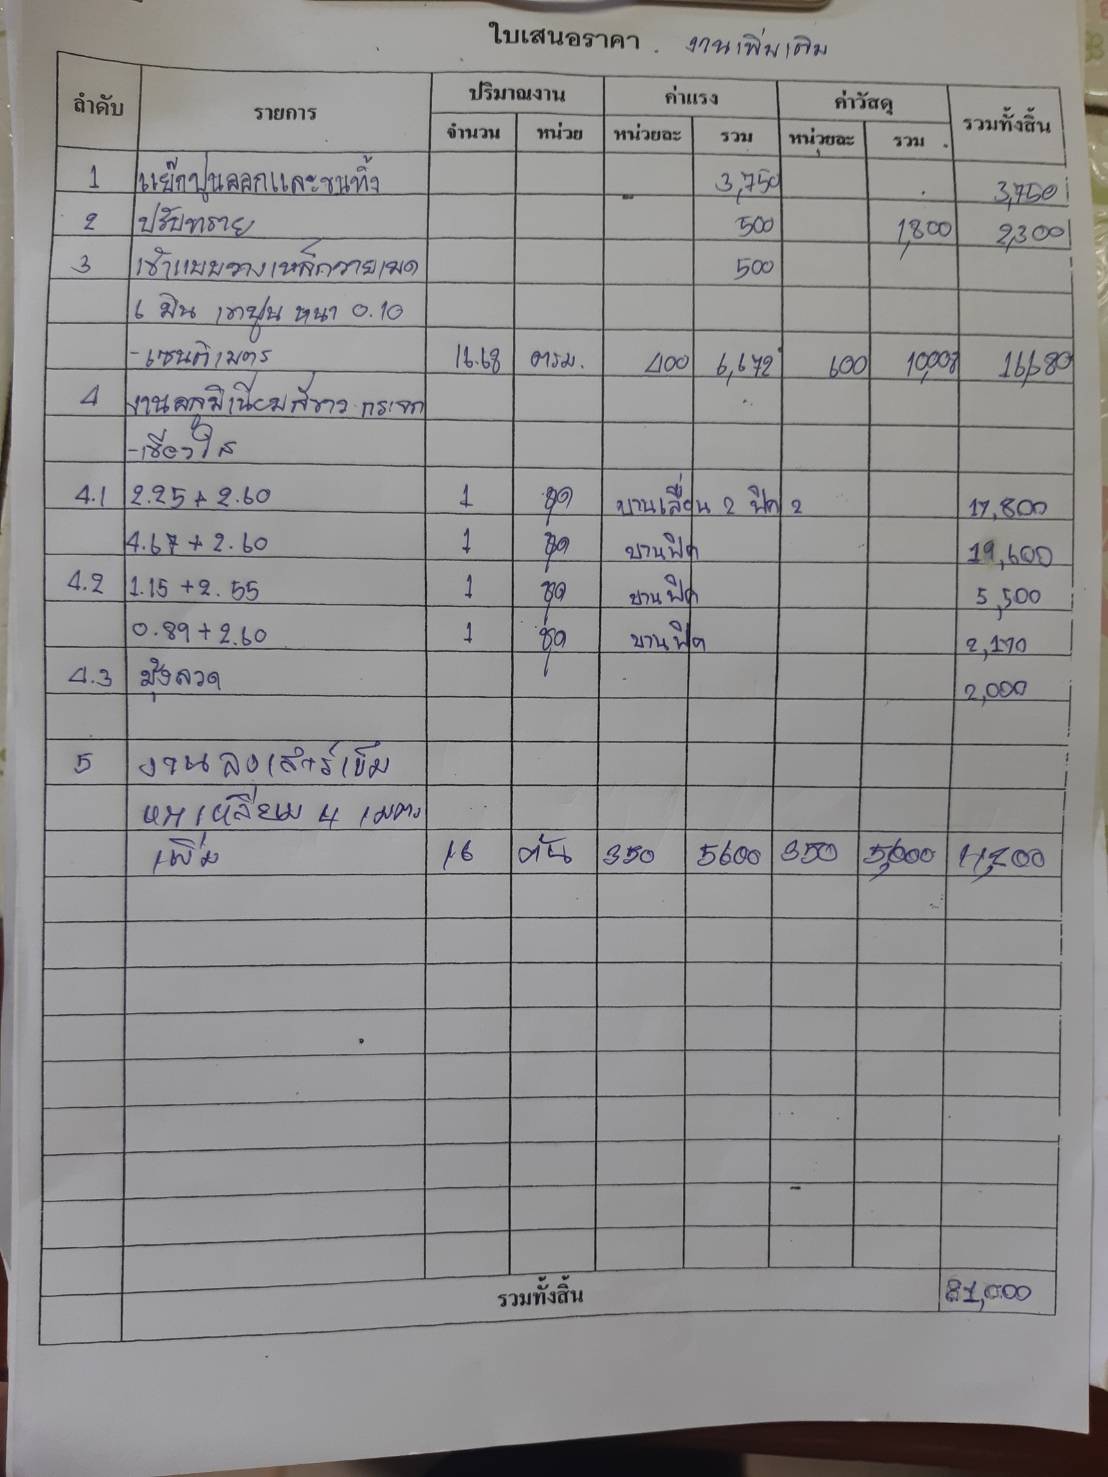 ใบเสนอราคา . งานเพิ่มเติม
ลำดับ รายการ ปริมาณงาน ค่าแรง ค่าวัสดุ รวมทั้งสิ้น
จำนวน หน่วย หน่วยละ รวม หน่วยละ รวม
1 แย๊กปูนออกและขนทิ้ง 3,750 3,750
2 ปรับทราย 500 1,800 2,300
3 เข้าแบบวางเหล็กวายเมด 500
6 มิน เทปูน หนา 0.10
-เซนติเมตร 16.68 ตรม. 400 6,672 600 10,008 16,680
4 งานอลูมิเนียมสีขาว กระจก
-เขียวใส
4.1 2.25 + 2.60 1 ชุด บานเลื่อน 2 ฟิค 2 17,800
4.67 + 2.60 1 ชุด บานฟิค 19,600
4.2 1.15 + 2.55 1 ชุด บานฟิค 5,500
0.89 + 2.60 1 ชุด บานฟิค 2,170
4.3 มุ้งลวด 2,000
5 งานลงเสาร์เข็ม
หกเหลี่ยม 4 เมตร
เพิ่ม 16 ต้น 350 5600 350 11,200
รวมทั้งสิ้น 81,000